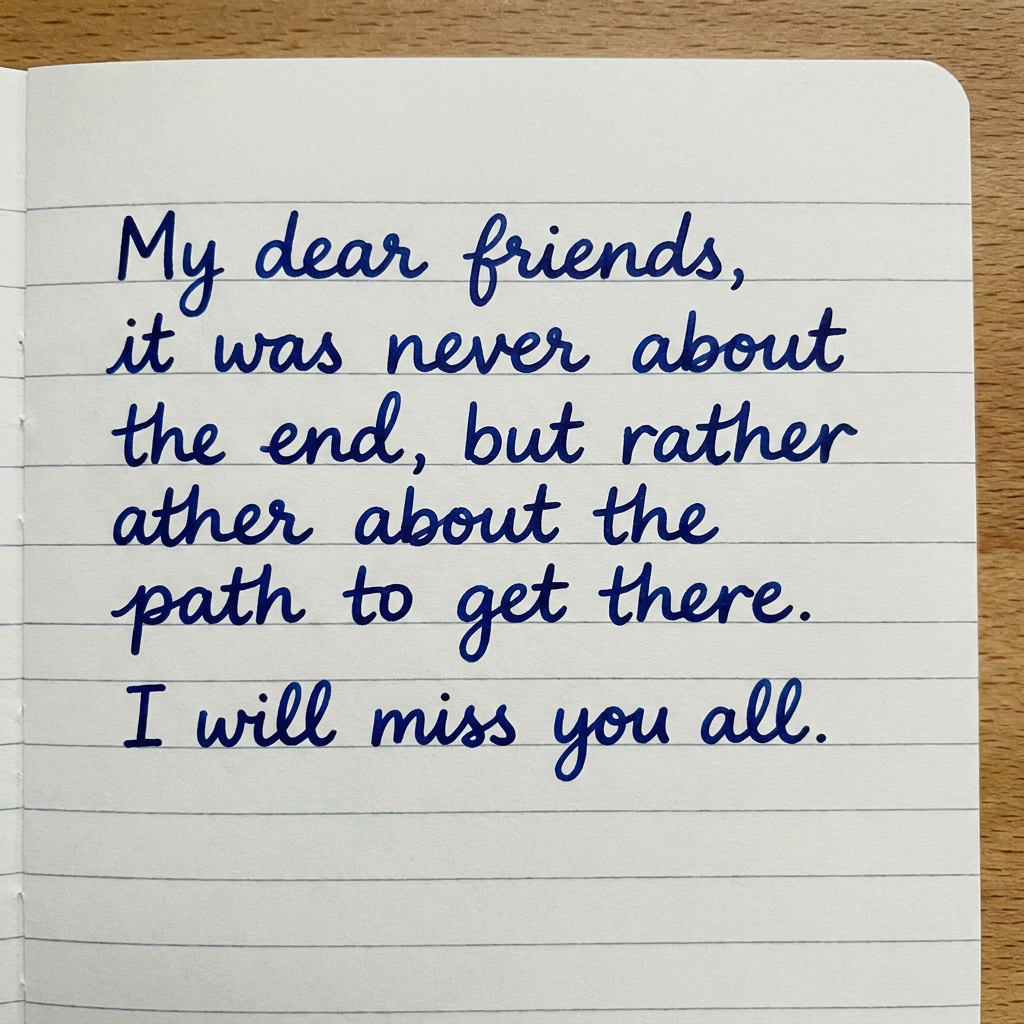 My dear friends,
it was never about
the end, but rather
ather about the
path to get there.
I will miss you all.